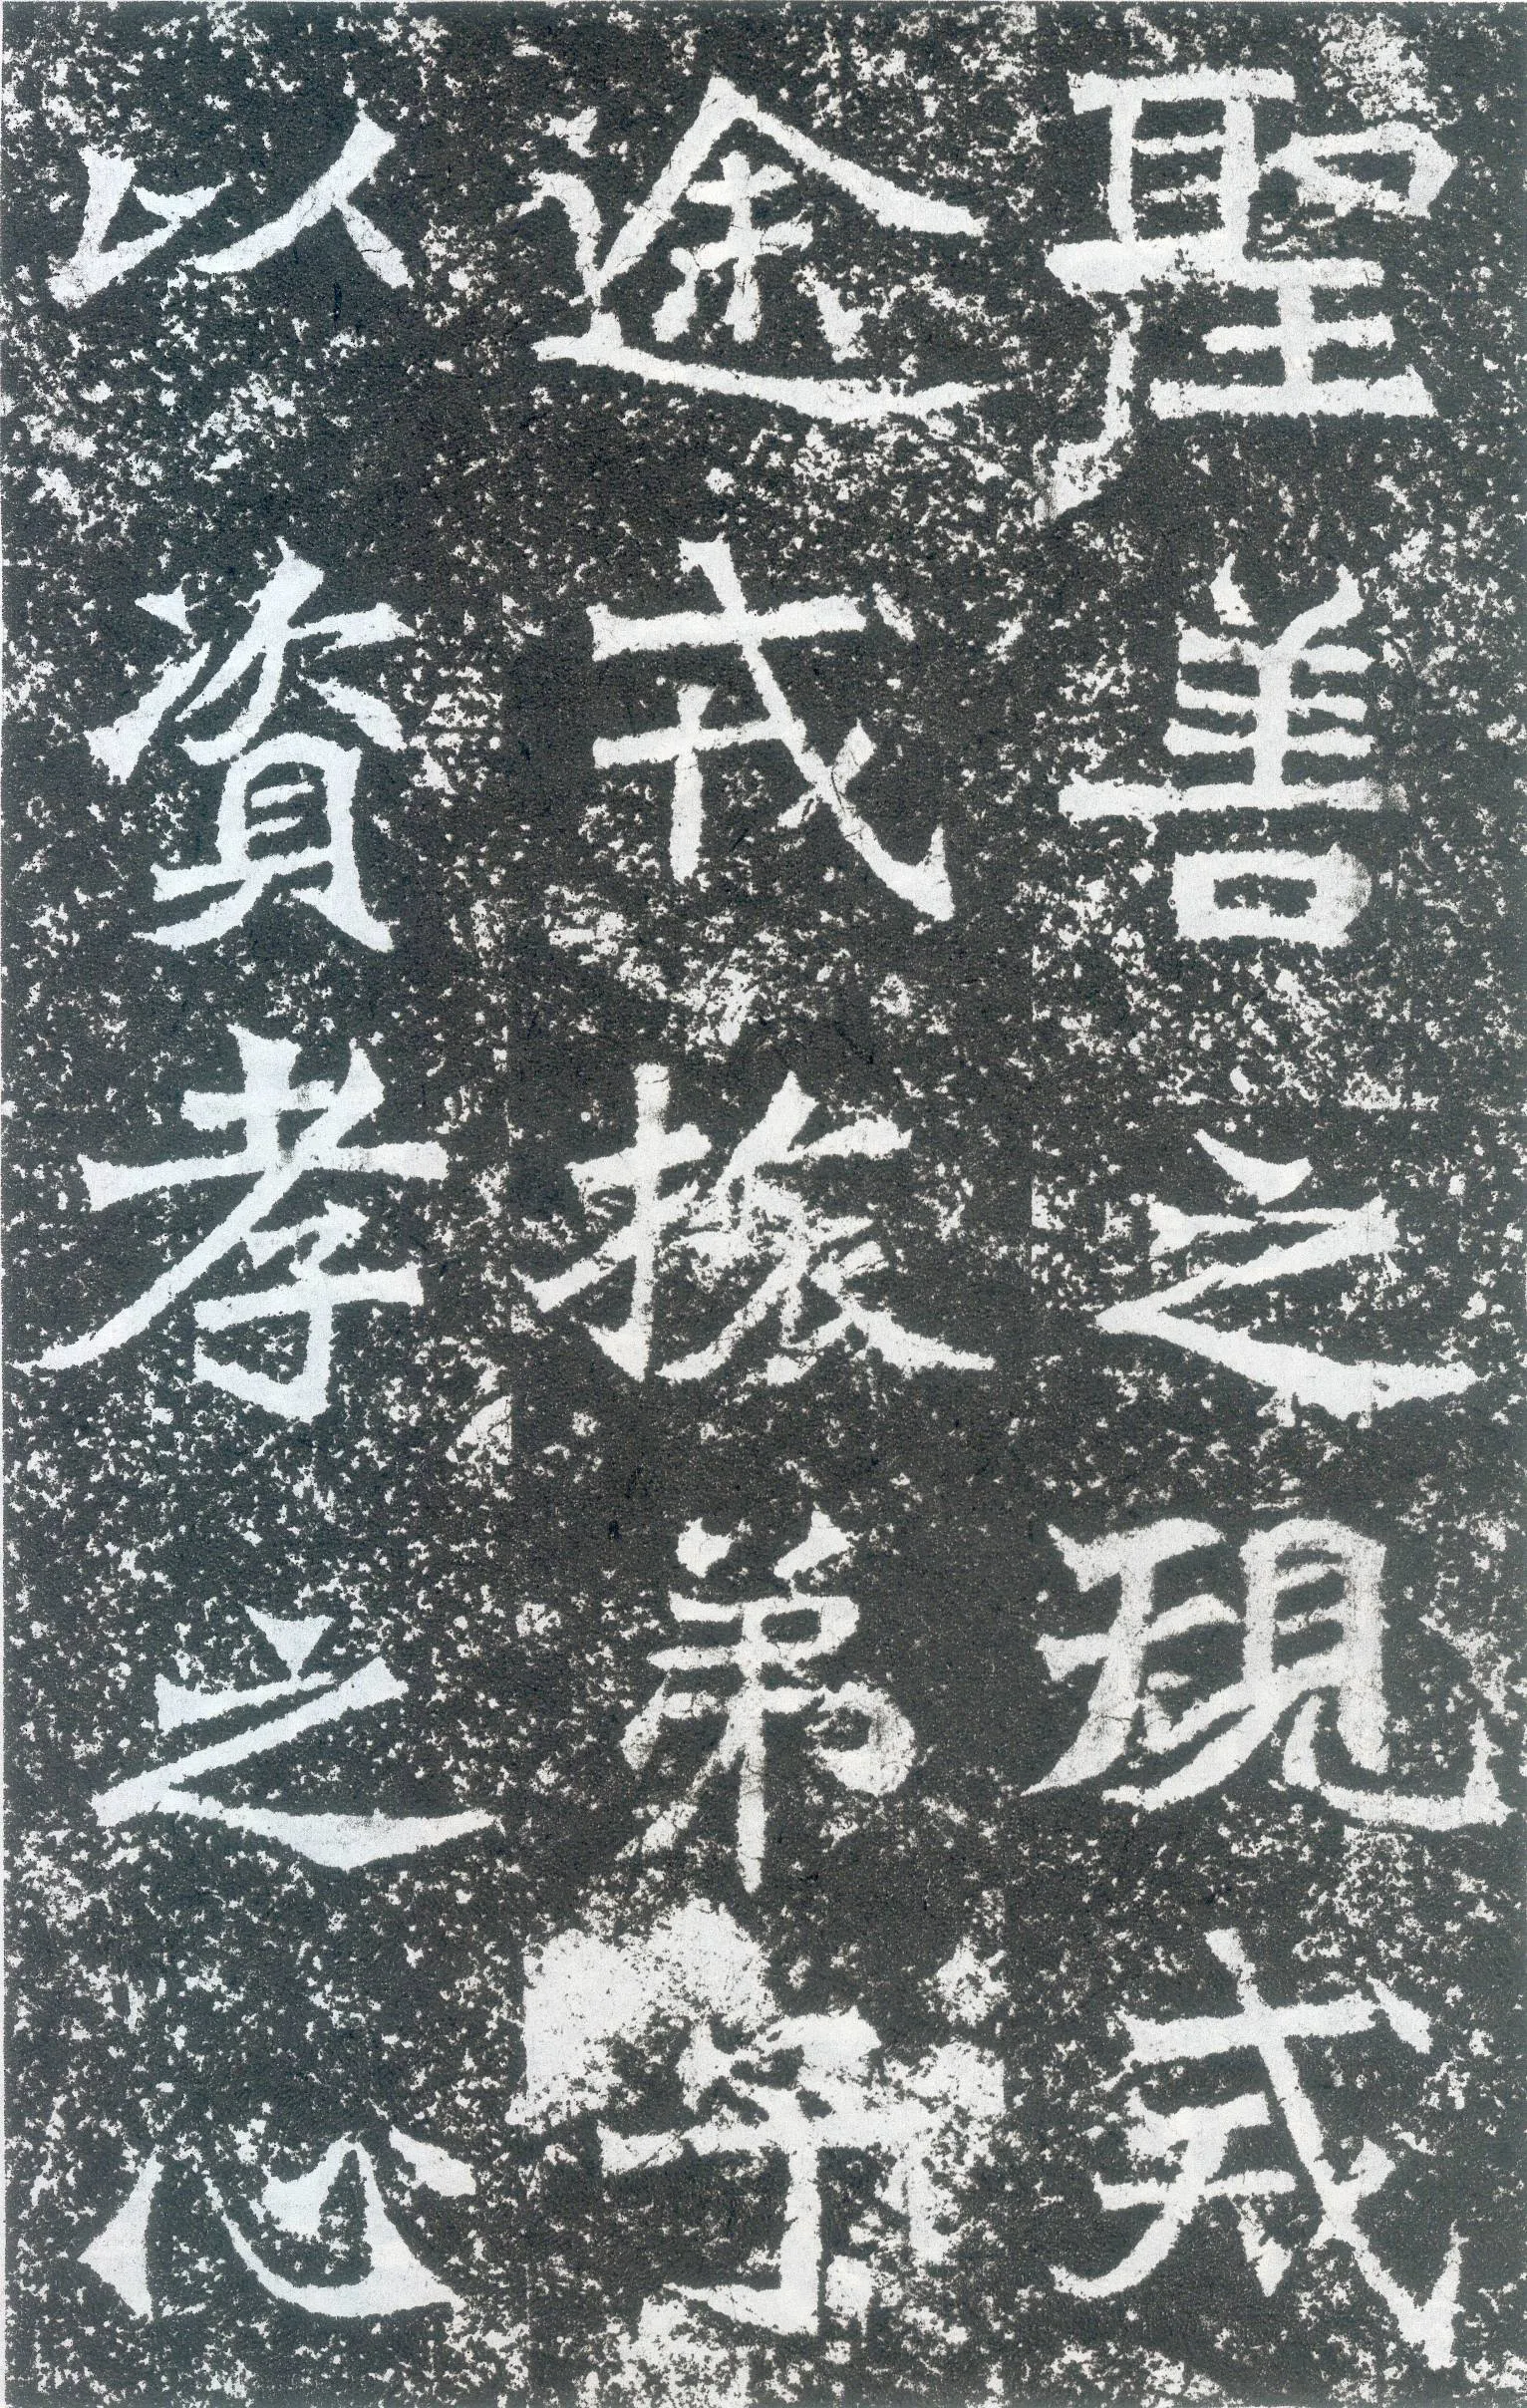 聖善之規戒
途戎旅弟子
以資孝之心